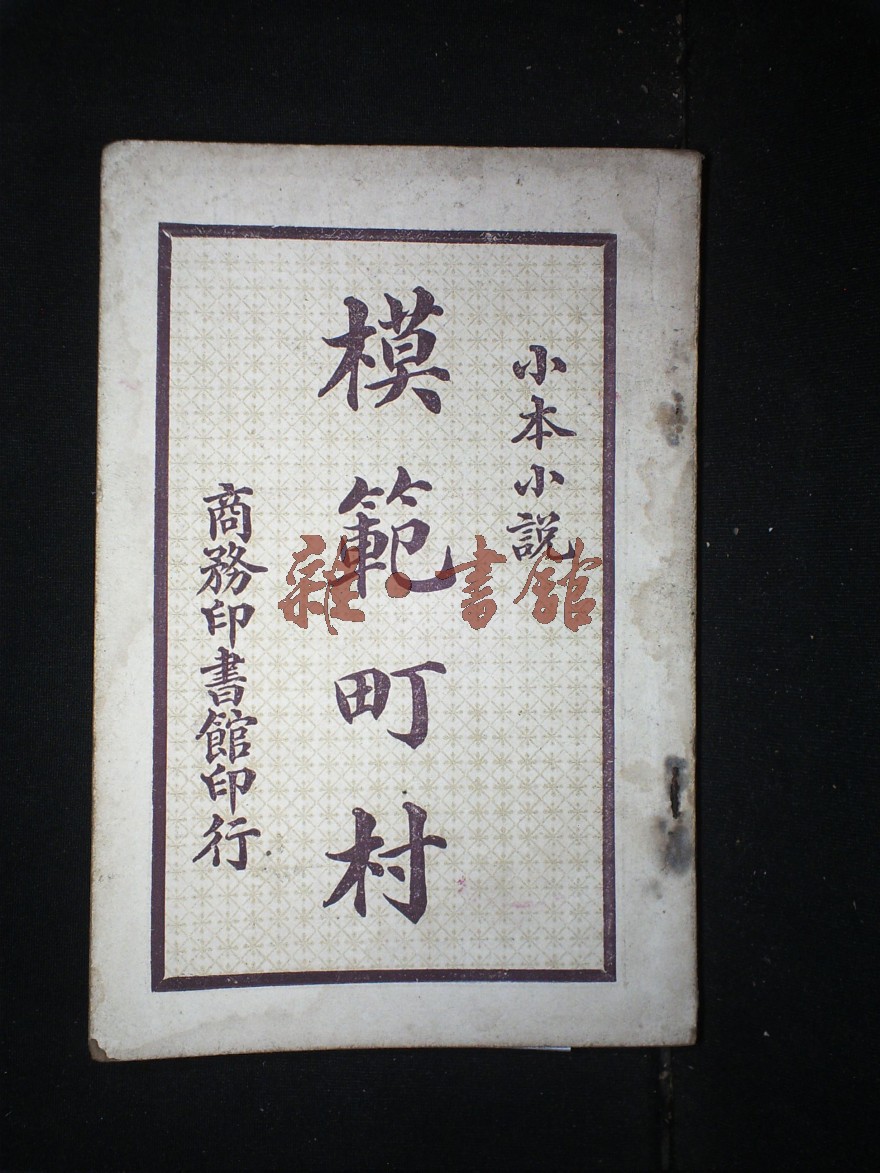 小本小説
模範町村
商務印書館印行
雜·書館